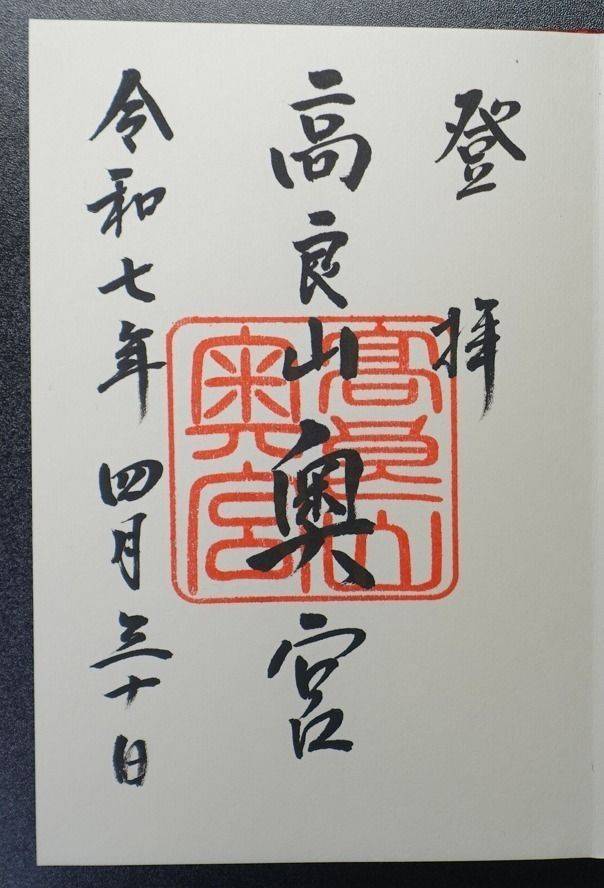 登拝
高良山奥宮
令和七年 四月三十日
高良山
奥宮